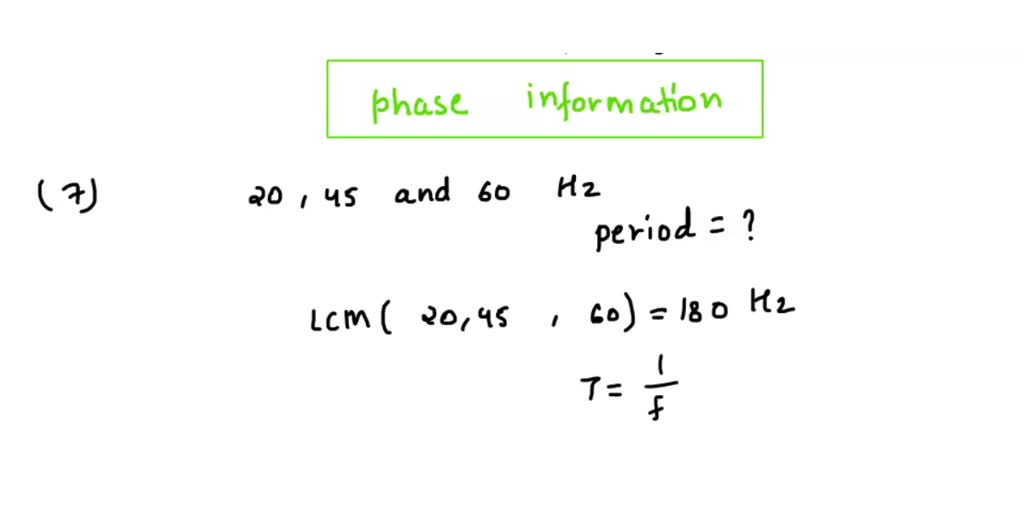 phase information
(7) 20, 45 and 60 Hz
period = ?
LCM( 20,45 , 60) = 180 Hz
T = 1/f